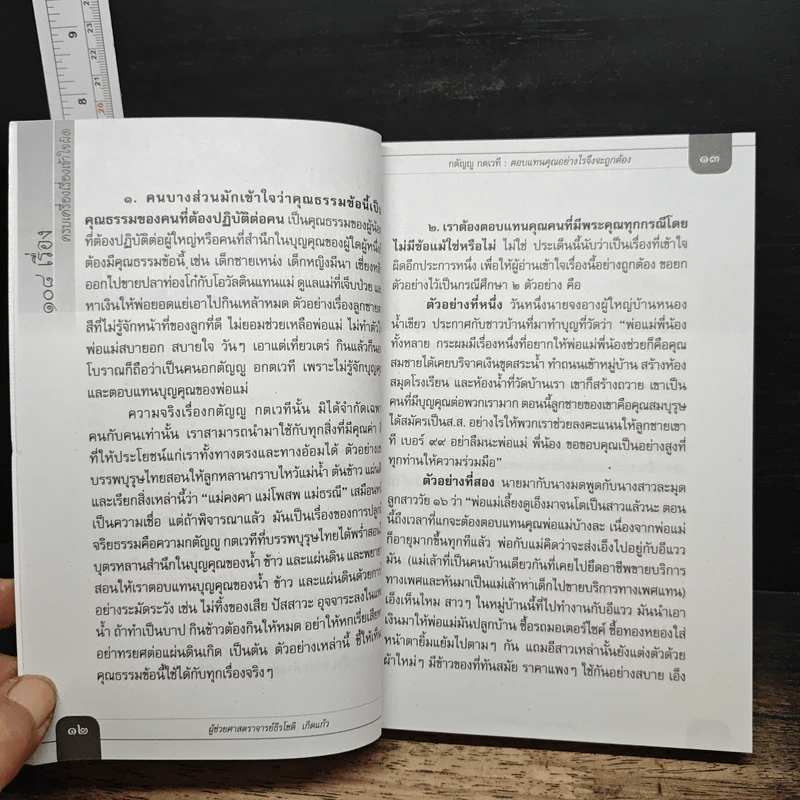 ๑๐๘ เรื่อง
ครบเครื่องเรื่องเข้าใจผิด
๑. คนบางส่วนมักเข้าใจว่าคุณธรรมข้อนี้เป็น
คุณธรรมของคนที่ต้องปฏิบัติต่อคน เป็นคุณธรรมของผู้น้อย
ที่ต้องปฏิบัติต่อผู้ใหญ่หรือคนที่สำนึกในบุญคุณของผู้ใดผู้หนึ่ง
ต้องมีคุณธรรมข้อนี้ เช่น เด็กชายเหน่ง เด็กหญิงมีนา
ออกไปขายปลาท่องโก๋กับโอวัลตินแทนแม่ ดูแลแม่ที่เจ็บป่วย และ
หาเงินให้พ่อยอดแย่เอาไปกินเหล้าหมด ตัวอย่างเรื่องลูกชาย
สีที่ไม่รู้จักหน้าที่ของลูกที่ดี ไม่ยอมช่วยเหลือพ่อแม่ ไม่ทำตัวให้
พ่อแม่สบายอก สบายใจ วันๆ เอาแต่เที่ยวเตร่ กินแล้วก็นอน
โบราณก็ถือว่าเป็นคนอกตัญญู อกตเวที เพราะไม่รู้จักบุญคุณ
และตอบแทนบุญคุณของพ่อแม่
ความจริงเรื่องกตัญญู กตเวทีนั้น มิได้จำกัดเฉพาะ
คนกับคนเท่านั้น เราสามารถนำมาใช้กับทุกสิ่งที่มีคุณค่า
ที่ให้ประโยชน์แก่เราทั้งทางตรงและทางอ้อมได้ ตัวอย่าง
บรรพบุรุษไทยสอนให้ลูกหลานกราบไหว้แม่น้ำ ต้นข้าว แผ่นดิน
และเรียกสิ่งเหล่านี้ว่า “แม่คงคา แม่โพสพ แม่ธรณี” เสมือน
เป็นความเชื่อ แต่ถ้าพิจารณาแล้ว มันเป็นเรื่องของการปลูก
จริยธรรมคือความกตัญญู กตเวทีที่บรรพบุรุษไทยได้พร่ำสอน
บุตรหลานสำนึกในบุญคุณของน้ำ ข้าว และแผ่นดิน และ
สอนให้เราตอบแทนบุญคุณของน้ำ ข้าว และแผ่นดินด้วยการ
อย่างระมัดระวัง เช่น ไม่ทิ้งของเสีย ปัสสาวะ อุจจาระลงในแม่
น้ำ ถ้าทำเป็นบาป กินข้าวต้องกินให้หมด อย่าให้หกเรี่ย
อย่าทรยศต่อแผ่นดินเกิด เป็นต้น ตัวอย่างเหล่านี้ ชี้ให้เห็น
คุณธรรมข้อนี้ใช้ได้กับทุกเรื่องจริงๆ
๑๒
ผู้ช่วยศาสตราจารย์ธีรโชติ เกิดแก้ว
กตัญญู กตเวที : ตอบแทนคุณอย่างไรจึงจะถูกต้อง
๑๓
๒. เราต้องตอบแทนคุณคนที่มีพระคุณทุกกรณีโดย
ไม่มีข้อแม้ใช่หรือไม่ ไม่ใช่ ประเด็นนี้นับว่าเป็นเรื่องที่เข้าใจ
ผิดอีกประการหนึ่ง เพื่อให้ผู้อ่านเข้าใจเรื่องนี้อย่างถูกต้อง ขอยก
ตัวอย่างไว้เป็นกรณีศึกษา ๒ ตัวอย่าง คือ
ตัวอย่างที่หนึ่ง วันหนึ่งนายจงอางผู้ใหญ่บ้านหนอง
น้ำเขียว ประกาศกับชาวบ้านที่มาทำบุญที่วัดว่า “พ่อแม่พี่น้อง
ทั้งหลาย กระผมมีเรื่องหนึ่งที่อยากให้พ่อแม่พี่น้องช่วยก็คือคุณ
สมชายได้เคยบริจาคเงินขุดสระน้ำ ทำถนนเข้าหมู่บ้าน สร้างห้อง
สมุดโรงเรียน และห้องน้ำที่วัดบ้านเรา เขาก็สร้างถวาย เขาเป็น
คนที่มีบุญคุณต่อพวกเรามาก ตอนนี้ลูกชายของเขาคือคุณสมบุรุษ
ได้สมัครเป็นส.ส. อย่างไรให้พวกเราช่วยลงคะแนนให้ลูกชายเขา
ที เบอร์ ๙๙ อย่าลืมนะพ่อแม่ พี่น้อง ขอขอบคุณเป็นอย่างสูงที่
ทุกท่านให้ความร่วมมือ”
ตัวอย่างที่สอง นายมากับนางมดพูดกับนางสาวละมุด
ลูกสาววัย ๑๖ ว่า “พ่อแม่เลี้ยงดูเอ็งมาจนโตเป็นสาวแล้วนะ ตอน
นี้ถึงเวลาที่แกจะต้องตอบแทนคุณพ่อแม่บ้างละ เนื่องจากพ่อแม่
ก็อายุมากขึ้นทุกทีแล้ว พ่อกับแม่คิดว่าจะส่งเอ็งไปอยู่กับอีแวว
มัน (แม่เล้าที่เป็นคนบ้านเดียวกันที่เคยไปยึดอาชีพขายบริการ
ทางเพศและหันมาเป็นแม่เล้าหาเด็กไปขายบริการทางเพศแทน)
เอ็งเห็นไหม สาวๆ ในหมู่บ้านนี้ที่ไปทำงานกับอีแวว มันนำเอา
เงินมาให้พ่อแม่มันปลูกบ้าน ซื้อรถมอเตอร์ไซค์ ซื้อทองหยองใส่
หน้าตายิ้มแย้มไปตามๆ กัน แถมอีสาวเหล่านั้นยังแต่งตัวด้วย
ผ้าใหม่ๆ มีข้าวของที่ทันสมัย ราคาแพงๆ ใช้กันอย่างสบาย เอ็ง